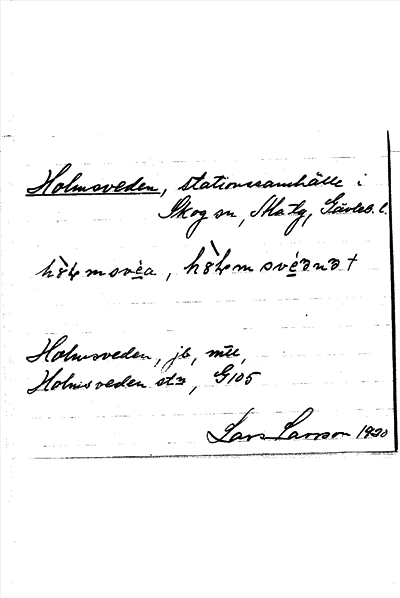 Holmsveden, stationssamhälle i
Skog sn, Ala tg, Gävleb. l.
hò̀lmsvèa, hò̀lmsvèənət
Holmsveden, jb, mtl,
Holmsveden stn, G105
Lars Larsson 1920